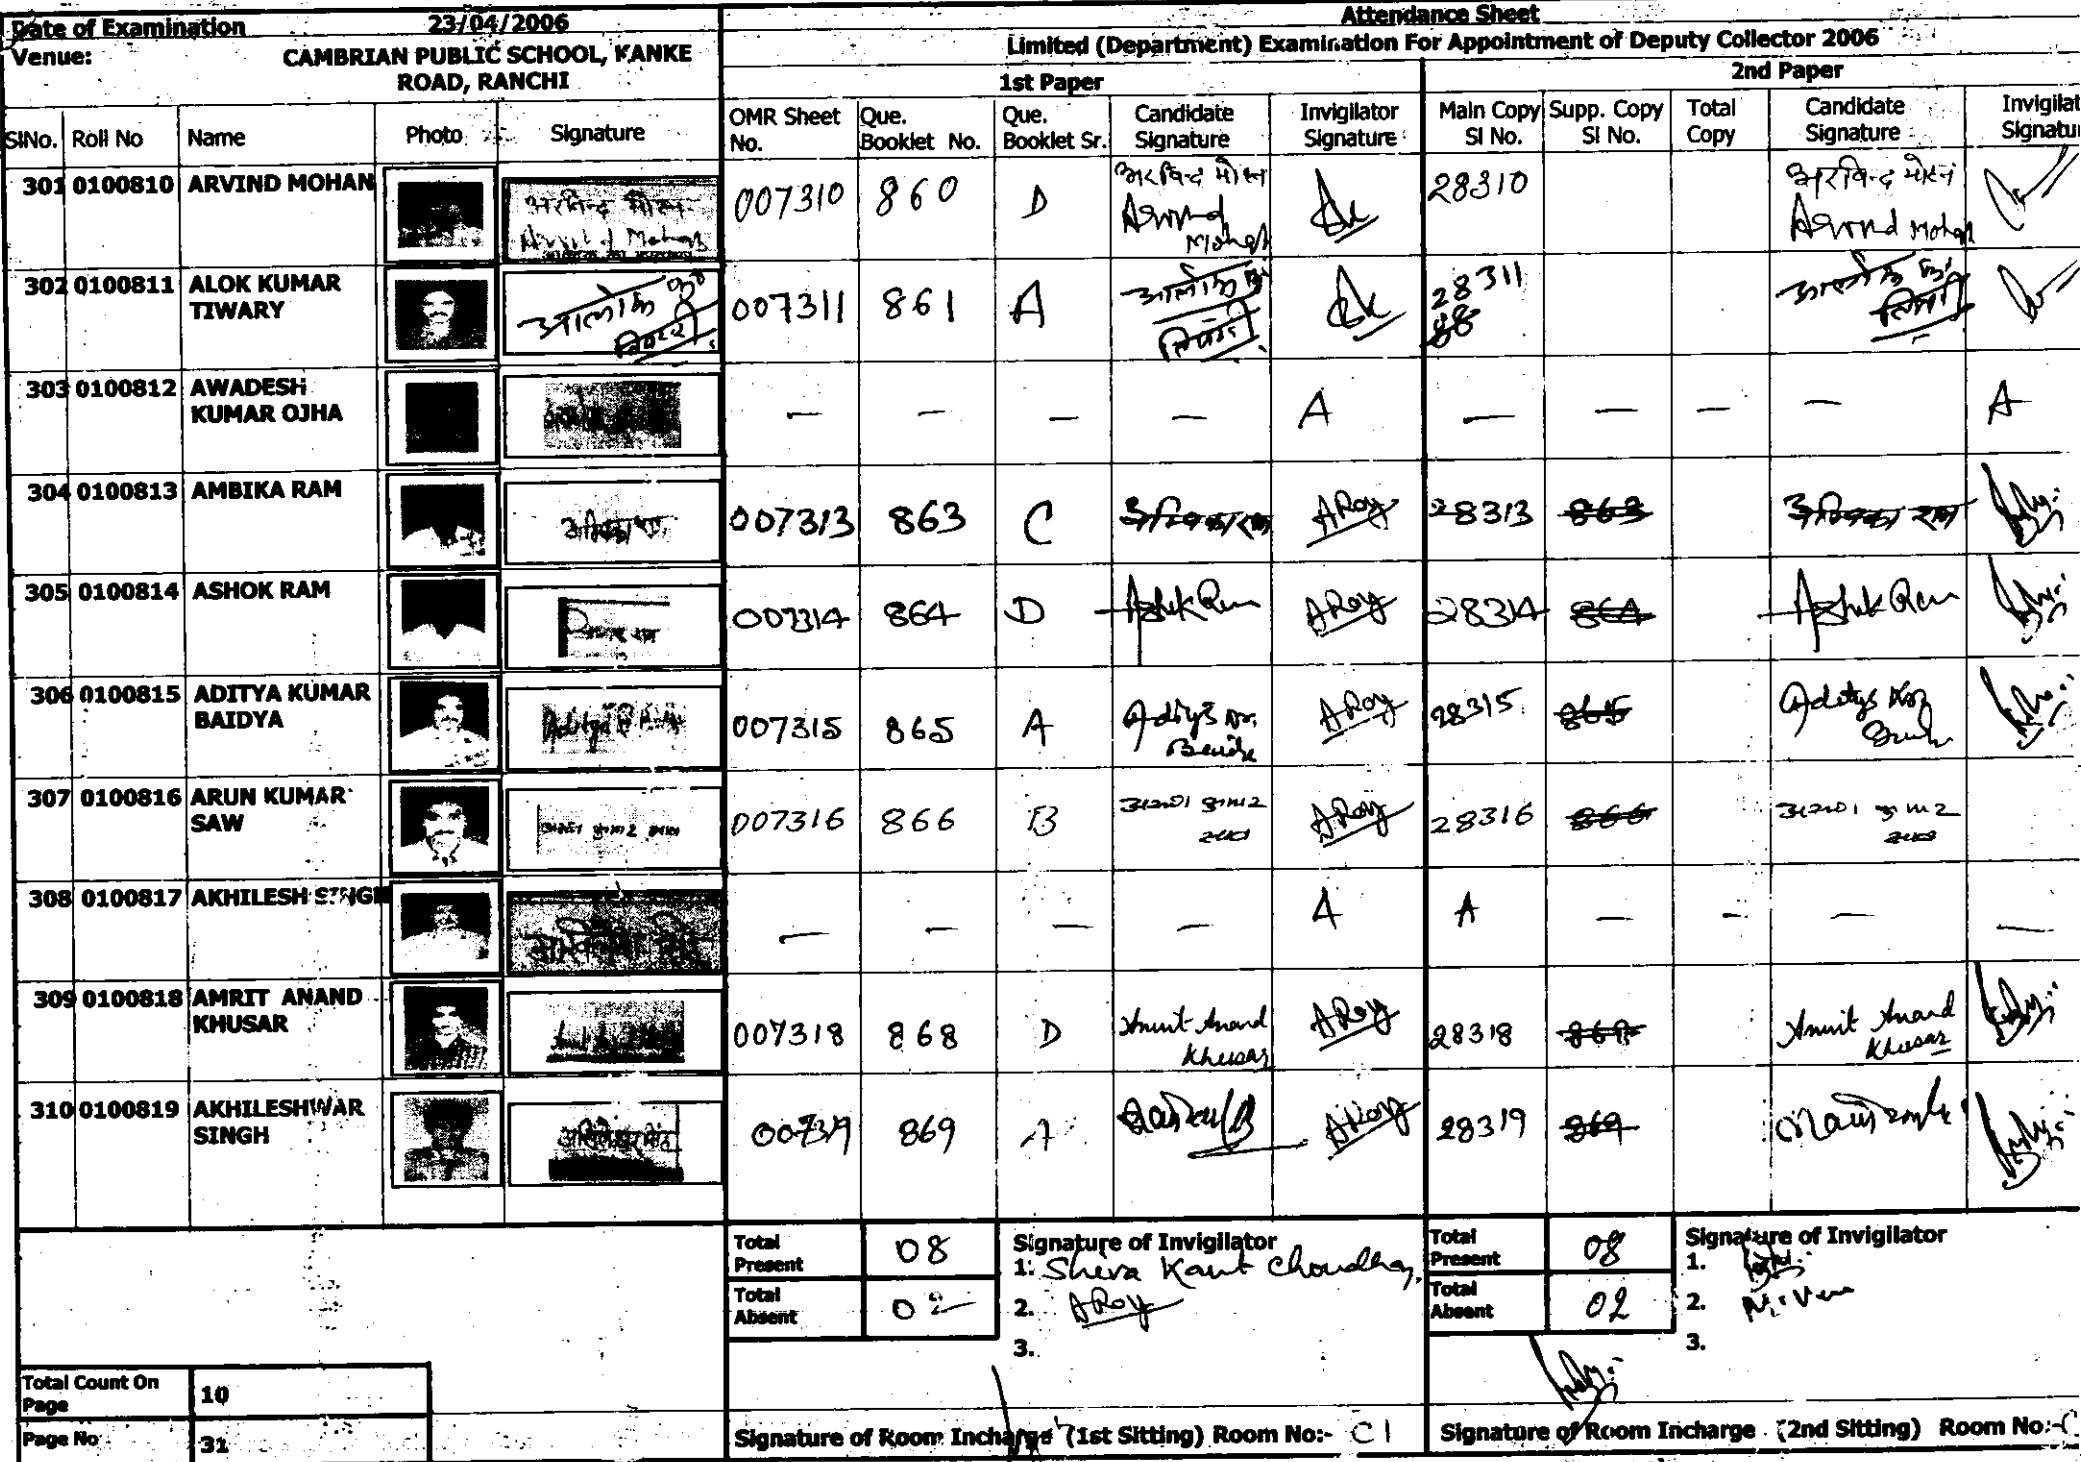 Date of Examination 23/04/2006
Venue: CAMBRIAN PUBLIC SCHOOL, KANKE
ROAD, RANCHI
Attendance Sheet
Limited (Department) Examination For Appointment of Deputy Collector 2006
1st Paper 2nd Paper
SlNo. Roll No Name Photo Signature OMR Sheet No. Que. Booklet No. Que. Booklet Sr. Candidate Signature Invigilator Signature Main Copy Sl No. Supp. Copy Sl No. Total Copy Candidate Signature Invigilat Signatur
301 0100810 ARVIND MOHAN 007310 860 D अरविन्द मोहन Arvind Mohan 28310 अरविन्द मोहन Arvind Mohan
302 0100811 ALOK KUMAR TIWARY 007311 861 A 28311
303 0100812 AWADESH KUMAR OJHA — — — — A — — — — A
304 0100813 AMBIKA RAM 007313 863 C ARoy 28313 863
305 0100814 ASHOK RAM 007314 864 D Ashok Ram ARoy 28314 864 Ashok Ram
306 0100815 ADITYA KUMAR BAIDYA 007315 865 A ARoy 28315 865
307 0100816 ARUN KUMAR SAW 007316 866 B ARoy 28316 866
308 0100817 AKHILESH SINGH — — — — A A — - — —
309 0100818 AMRIT ANAND KHUSAR 007318 868 D Amrit Anand Khusar ARoy 28318 868 Amrit Anand Khusar
310 0100819 AKHILESHWAR SINGH 007319 869 A ARoy 28319 869
Total Present 08 Signature of Invigilator
1. Shiva Kant Choudhary
Total Absent 02 2. ARoy
3.
Total Present 08 Signature of Invigilator
1.
Total Absent 02 2.
3.
Total Count On Page 10
Page No 31
Signature of Room Incharge (1st Sitting) Room No:- C1
Signature of Room Incharge (2nd Sitting) Room No:-